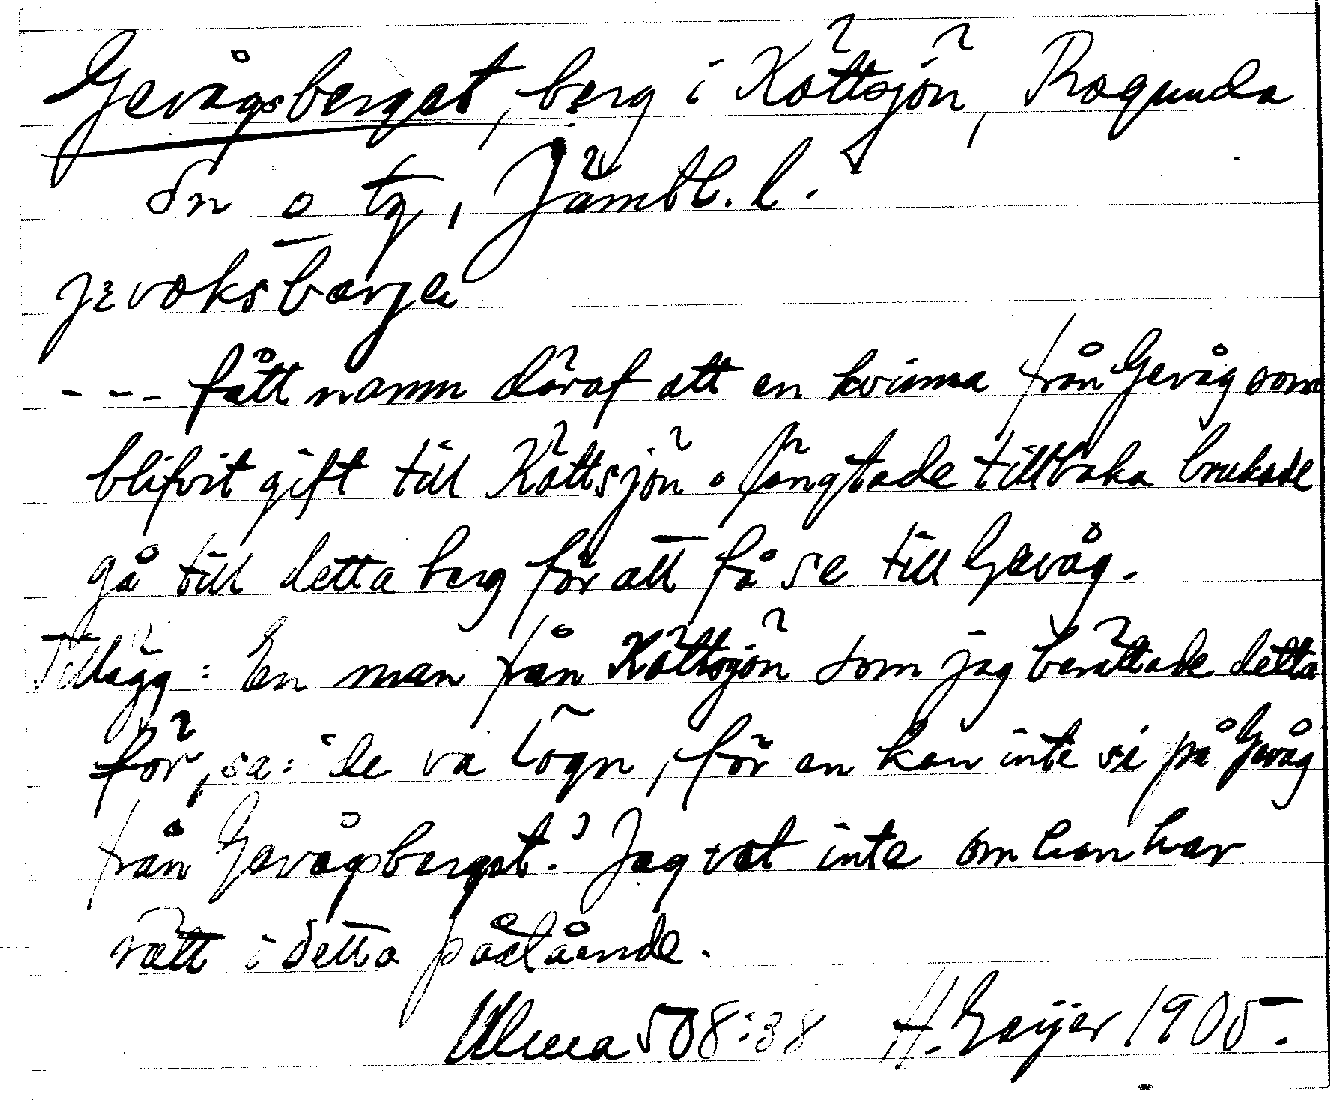 Gevågsberget, berg i Köttsjön, Ragunda
sn o tg, Jämtl. l.
jevoksbærje
--- fått namn däraf att en kvinna från Gevåg som
blifvit gift till Köttsjön o längtade tillbaka brukade
gå till detta berg för att få se till Gevåg.
Tillägg: En man från Köttsjön som jag berättade detta
för, sa: "de va lögn, för en kan inte si på Gevåg
från Gevågsberget." Jag vet inte om han har
rätt i detta påstående.
Ulma 508:38 H. Geijer 1905.